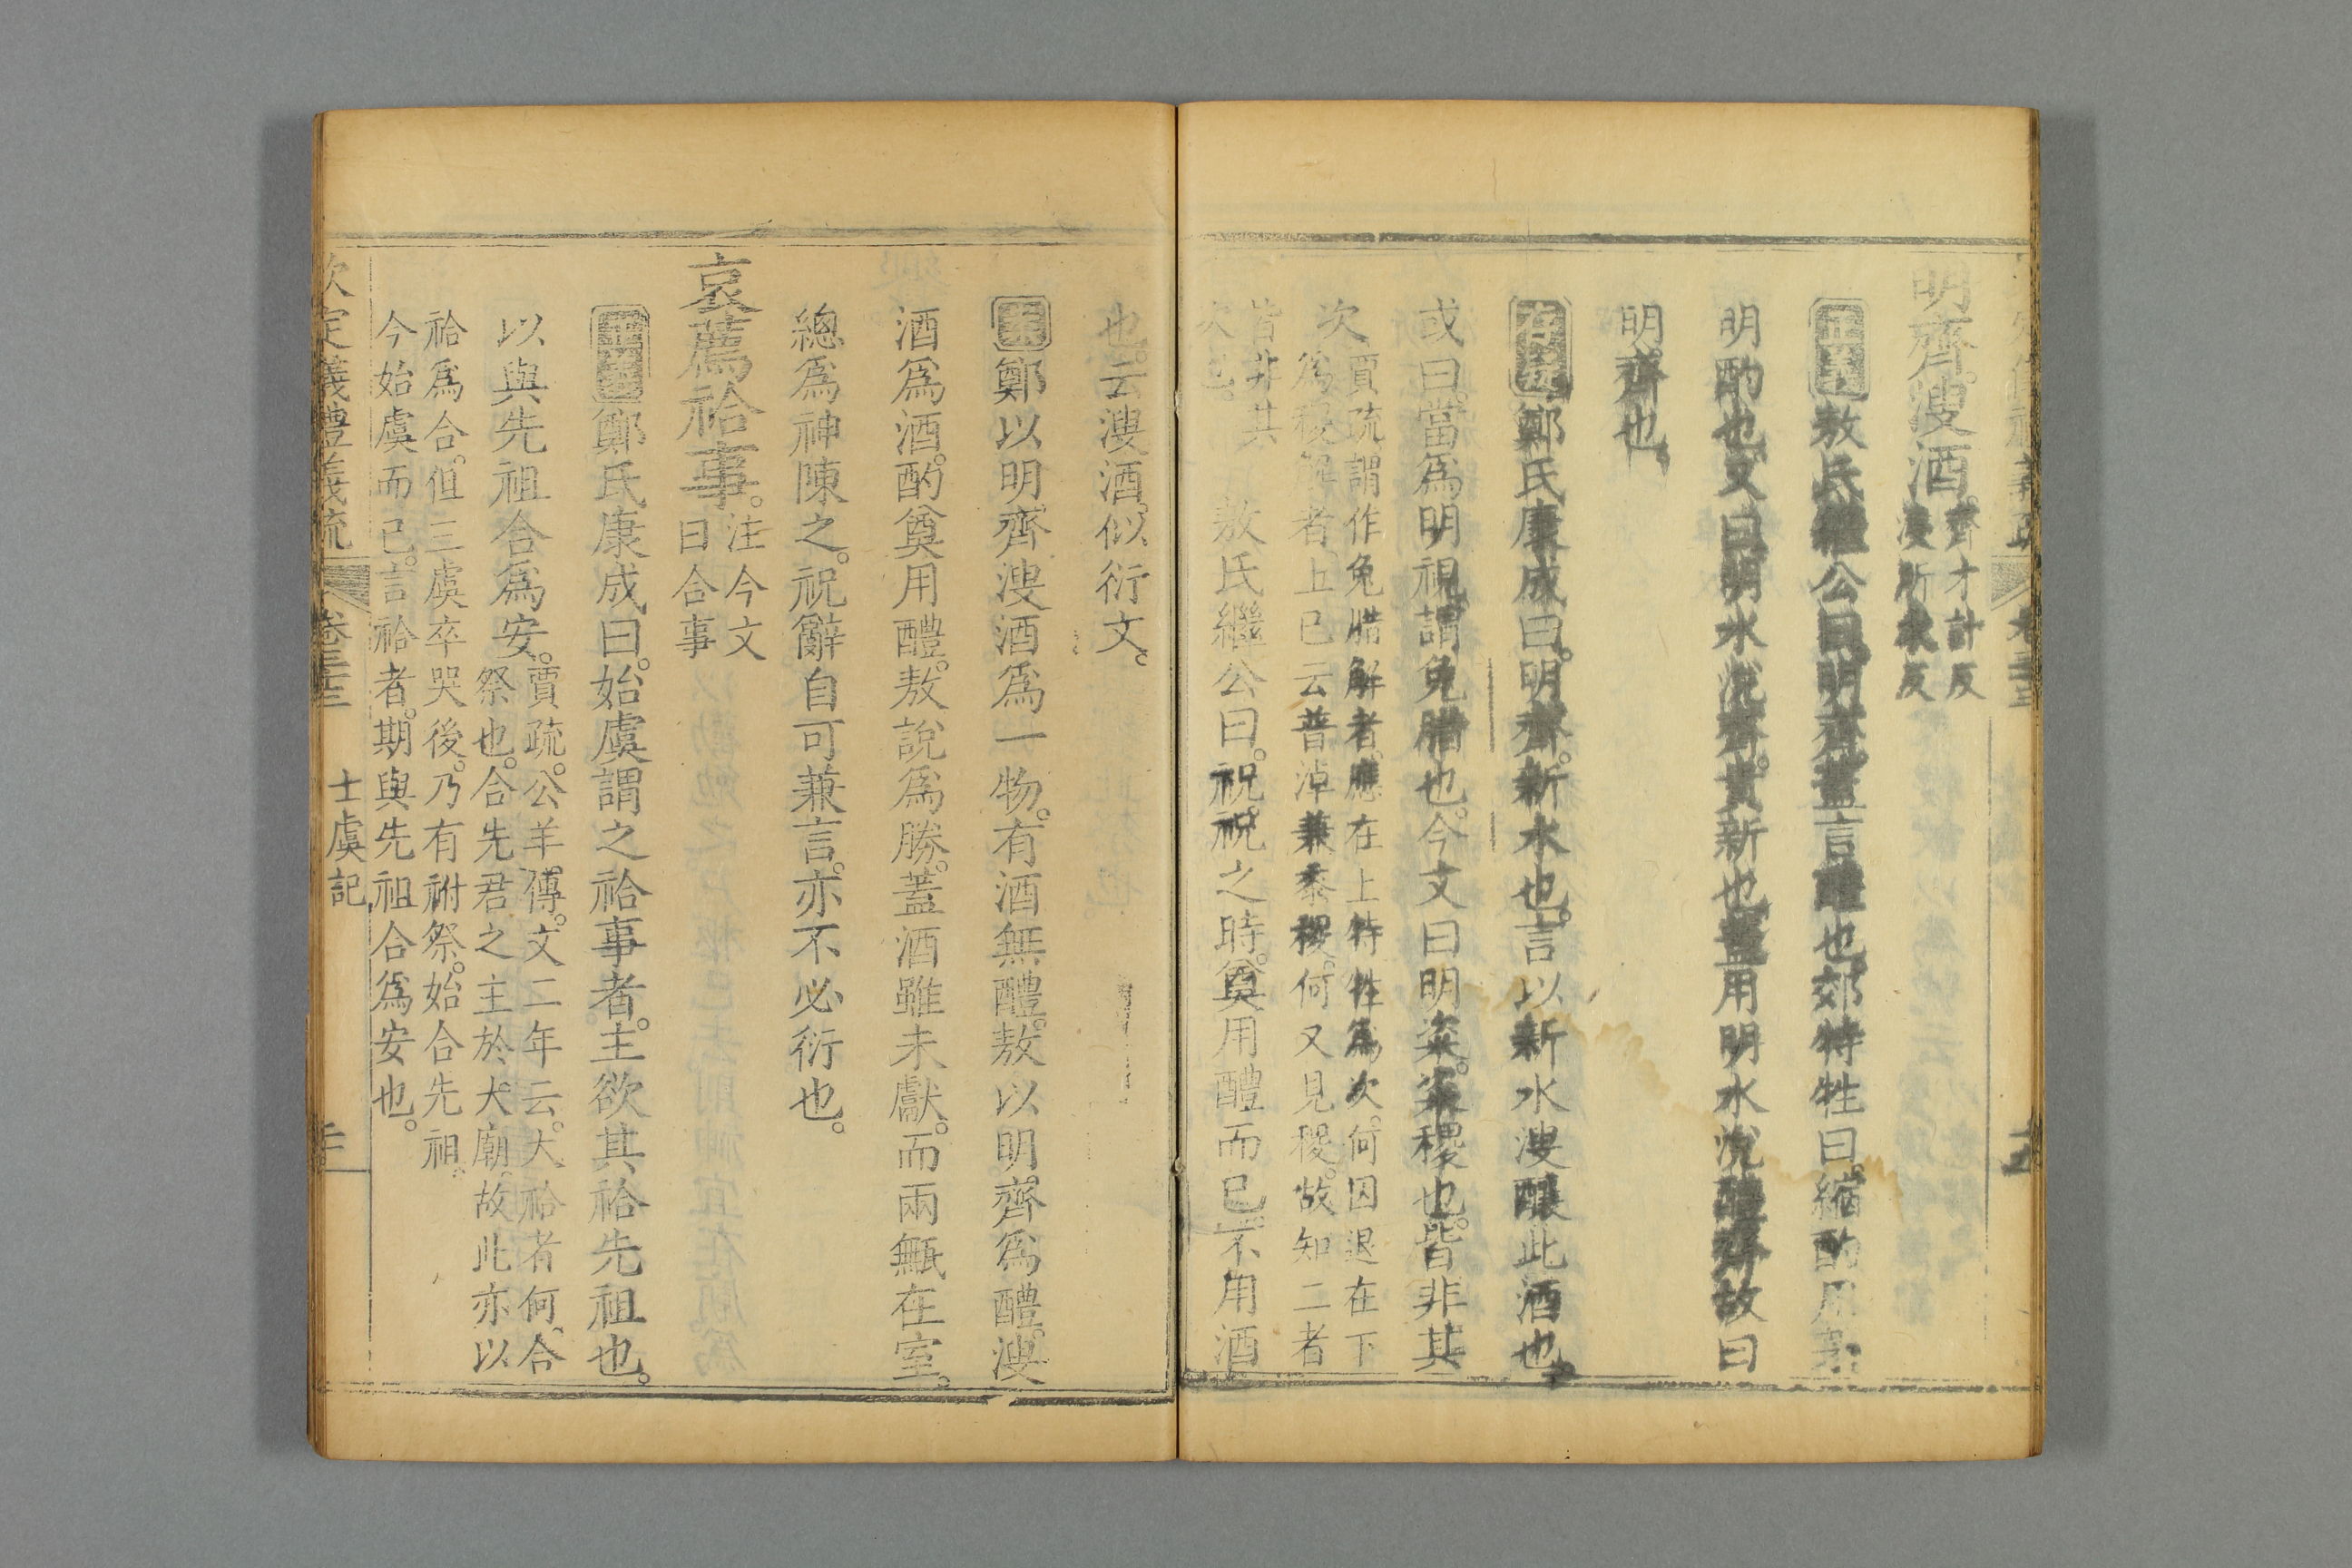 明齊溲酒。齊才計反
溲所求反
正義敖氏繼公曰。明齊蓋言醴也。郊特牲曰。縮酌用茅
明酌也。又曰。明水涗齊。貴新也。蓋用明水涗醴齊。故曰
明齊也。
存疑鄭氏康成曰。明齊。新水也。言以新水溲釀此酒也。
或曰。當爲明視。謂兔腊也。今文曰明粢。粢稷也。皆非其
次賈疏。謂作兔腊解者。應在上特牲爲次。何因退在下
爲稷解者。上已云普淖兼黍稷。何又見稷。故知二者
皆非其
次也。
敖氏繼公曰。祝祝之時。奠用醴而已。不用酒
也。云溲酒。似衍文。
鄭以明齊溲酒爲一物。有酒無醴。敖以明齊爲醴。溲
酒爲酒。酌奠用醴。敖說爲勝。蓋酒雖未獻。而兩甒在室。
總爲神陳之。祝辭自可兼言。亦不必衍也。
哀薦祫事。注今文
曰合事
正義鄭氏康成曰。始虞謂之祫事者。主欲其祫先祖也。
以與先祖合爲安。賈疏。公羊傳。文二年云。大祫者何。合
祭也。合先君之主於大廟。故此亦以
祫爲合。但三虞卒哭後。乃有祔祭。始合先祖。
今始虞而已。言祫者。期與先祖合爲安也。
欽定儀禮義疏
卷三十三
士虞記